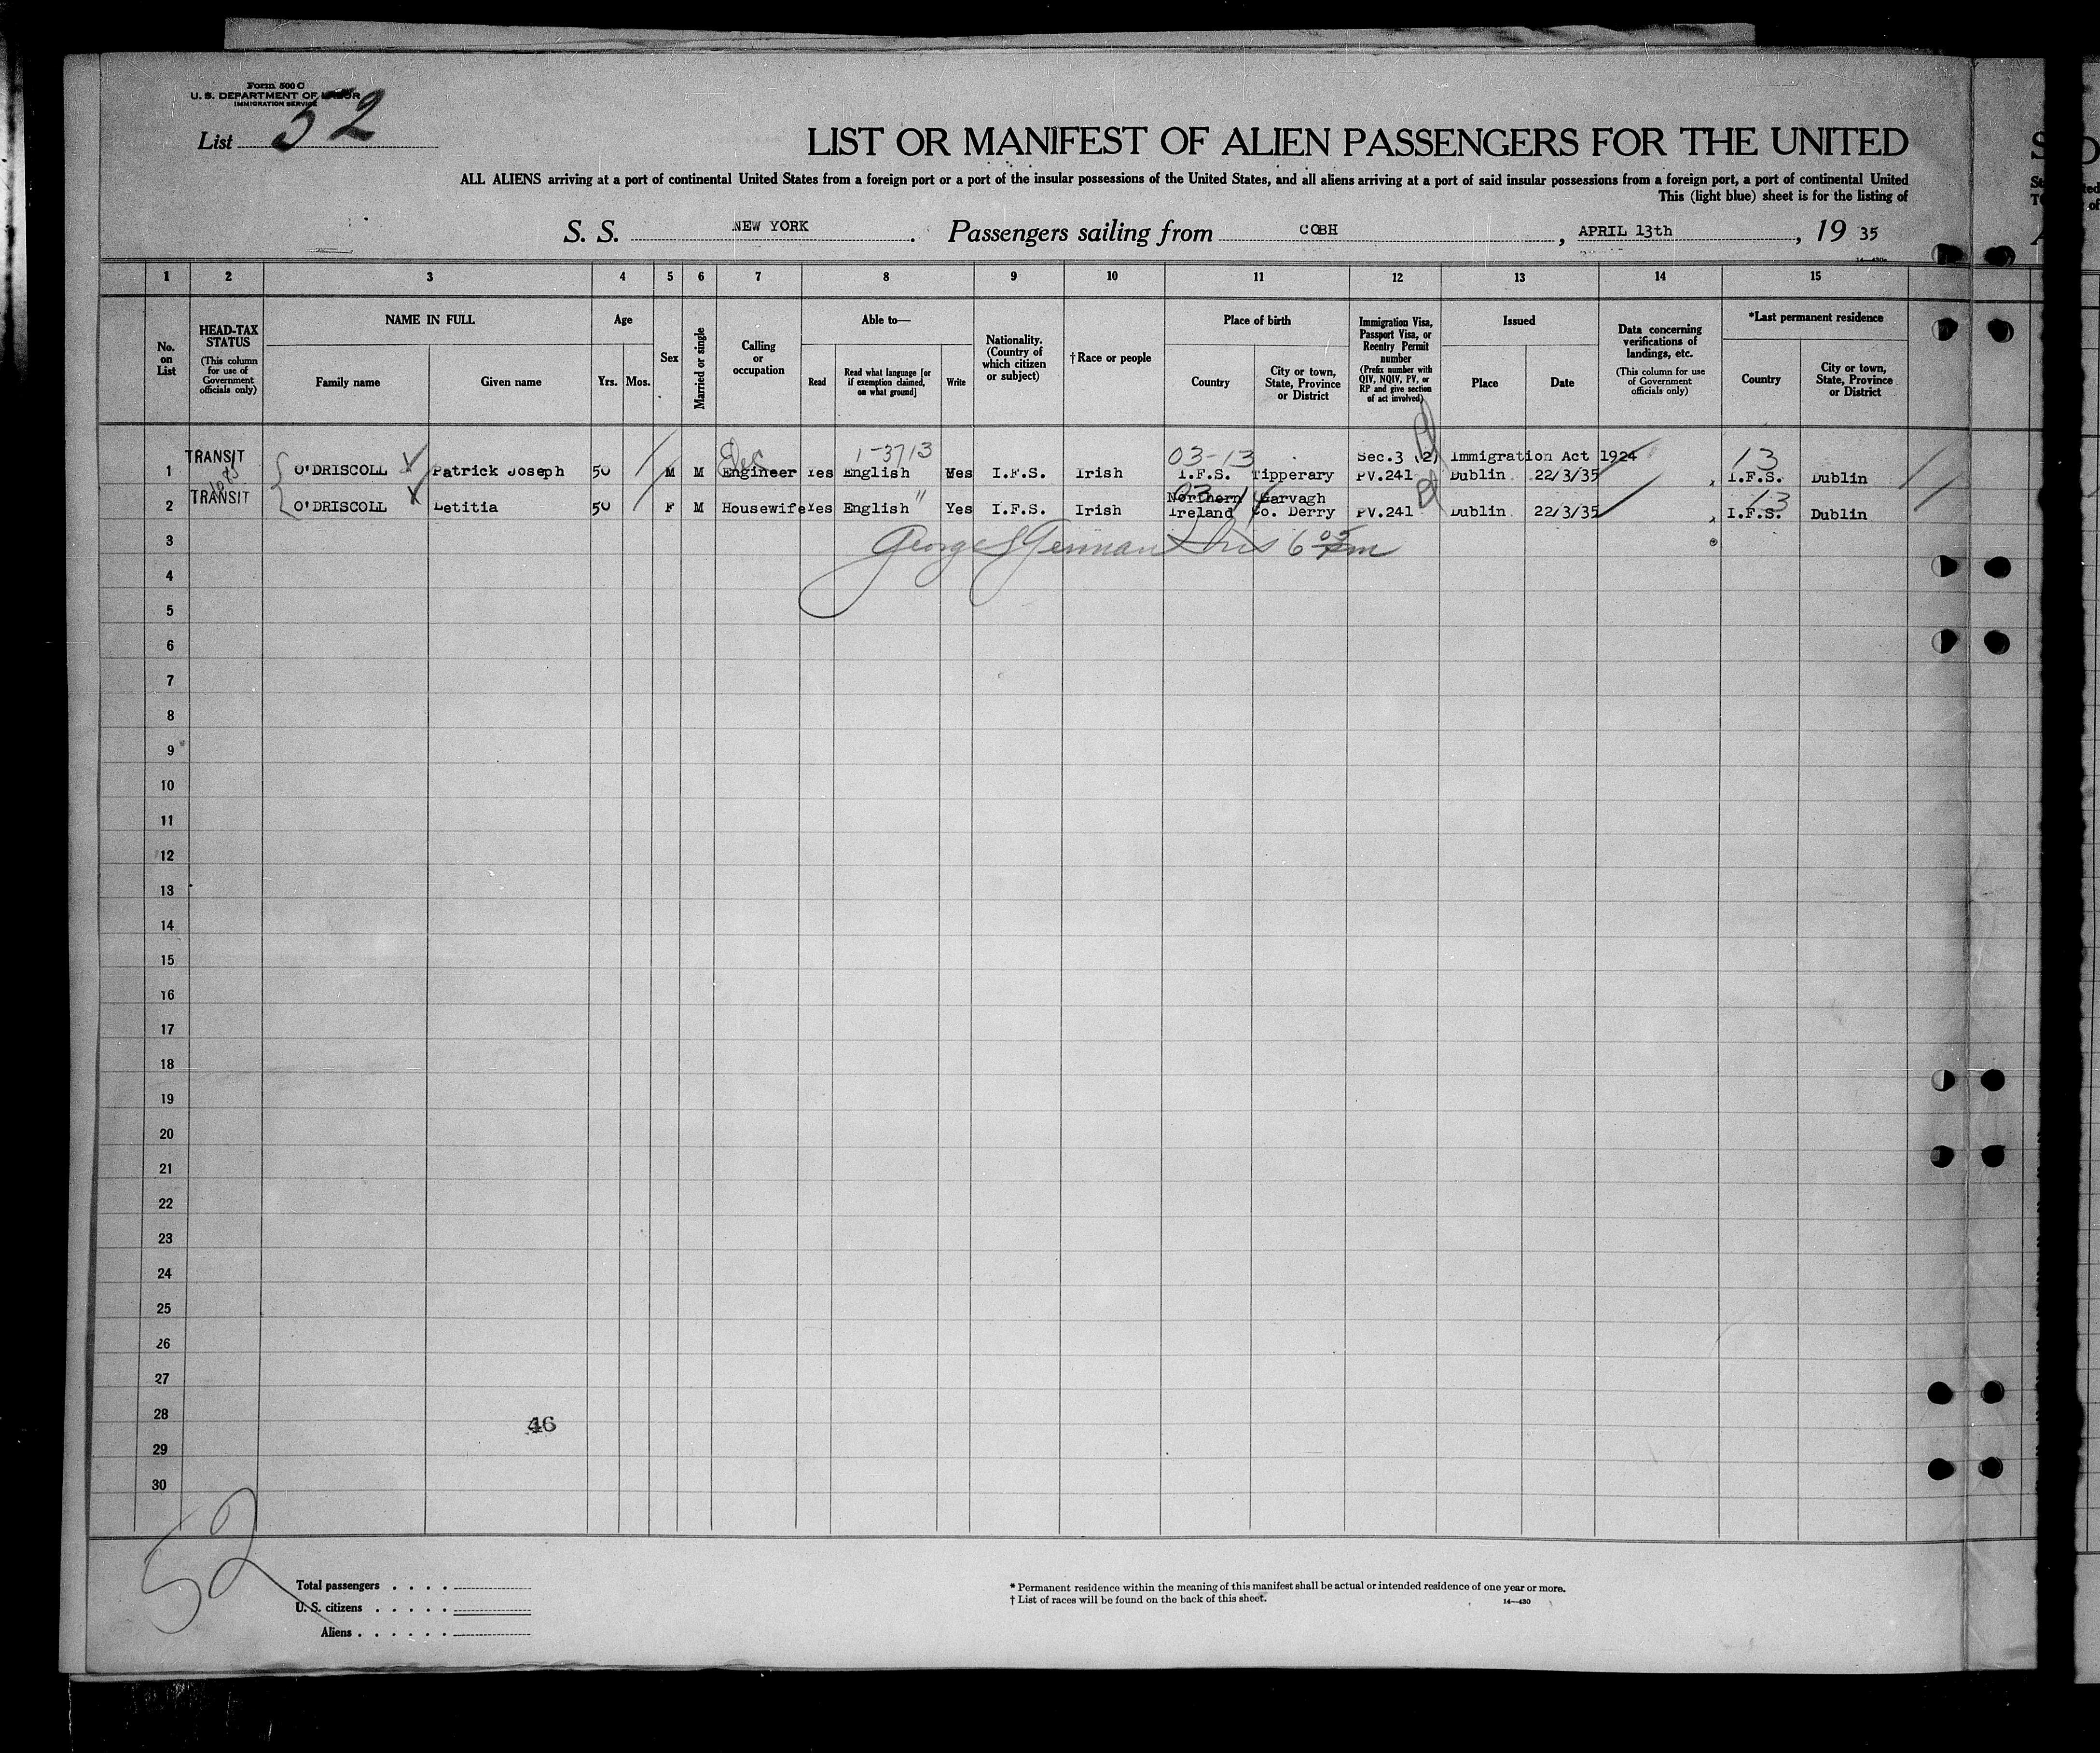 Form 500 C
U. S. DEPARTMENT OF LABOR
IMMIGRATION SERVICE
List 52
LIST OR MANIFEST OF ALIEN PASSENGERS FOR THE UNITED
ALL ALIENS arriving at a port of continental United States from a foreign port or a port of the insular possessions of the United States, and all aliens arriving at a port of said insular possessions from a foreign port, a port of continental United
This (light blue) sheet is for the listing of
S. S. NEW YORK. Passengers sailing from COBH, APRIL 13th, 19 35
14—430a
1 2 3 4 5 6 7 8 9 10 11 12 13 14 15
No. on List
HEAD-TAX STATUS (This column for use of Government officials only)
NAME IN FULL
Family name
Given name
Age
Yrs.
Mos.
Sex
Married or single
Calling or occupation
Able to—
Read
Read what language [or if exemption claimed, on what ground]
Write
Nationality. (Country of which citizen or subject)
†Race or people
Place of birth
Country
City or town, State, Province or District
Immigration Visa, Passport Visa, or Reentry Permit number (Prefix number with QIV, NQIV, PV, or RP and give section of act involved)
Issued
Place
Date
Data concerning verifications of landings, etc. (This column for use of Government officials only)
*Last permanent residence
Country
City or town, State, Province or District
Elec 1-3713 03-13 Sec.3 (2) Immigration Act 1924 13
1 TRANSIT O'DRISCOLL Patrick Joseph 50 M M Engineer Yes English Yes I.F.S. Irish I.F.S. Tipperary PV.241 Dublin 22/3/35 I.F.S. Dublin
2 TRANSIT O'DRISCOLL Letitia 50 F M Housewife Yes English " Yes I.F.S. Irish Northern Ireland Garvagh Co. Derry PV.241 Dublin 22/3/35 13 I.F.S. Dublin
3 George S German 6 05 pm
4
5
6
7
8
9
10
11
12
13
14
15
16
17
18
19
20
21
22
23
24
25
26
27
28
46
29
30
52
Total passengers
U. S. citizens
Aliens
* Permanent residence within the meaning of this manifest shall be actual or intended residence of one year or more.
† List of races will be found on the back of this sheet.
14—430